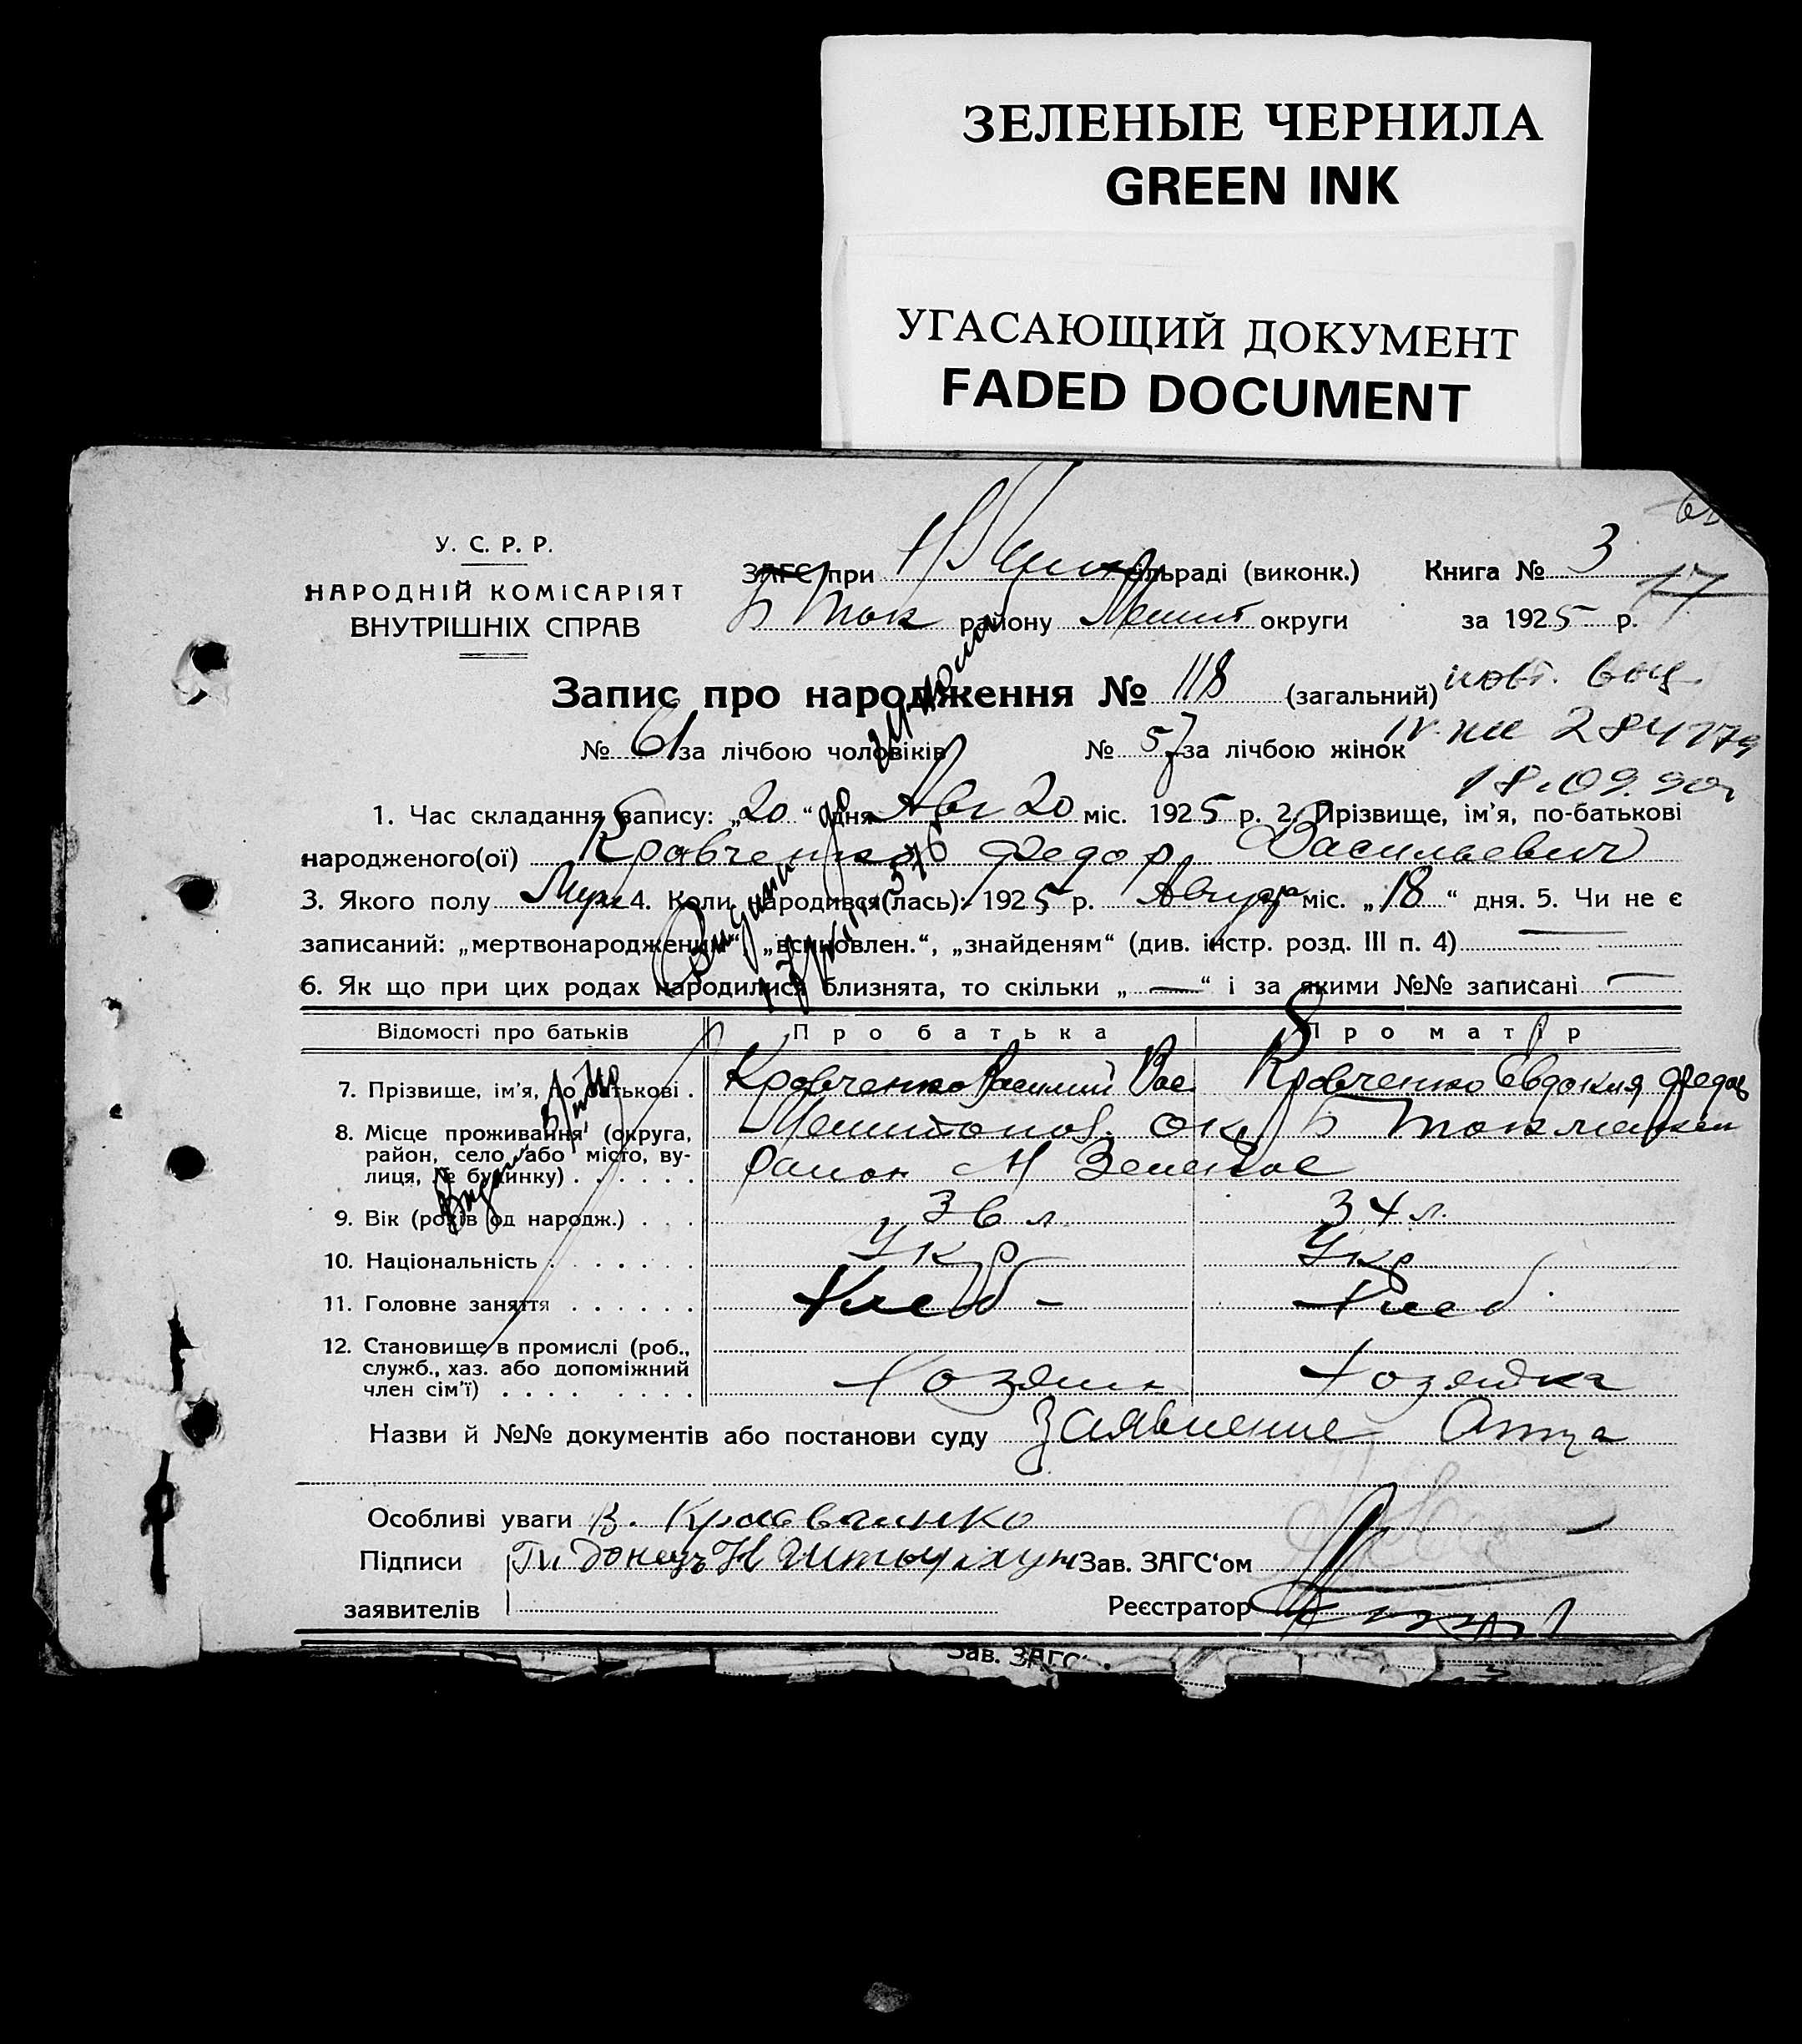 ЗЕЛЕНЫЕ ЧЕРНИЛА
GREEN INK
УГАСАЮЩИЙ ДОКУМЕНТ
FADED DOCUMENT
У. С. Р. Р.
НАРОДНІЙ КОМІСАРІЯТ
ВНУТРІШНІХ СПРАВ
ЗАГС при сільраді (виконк.) Книга № 3
Б Ток району Мелит округи за 1925 р. 17
Запис про народження № 118 (загальний) повт. выд.
№ 61 за лічбою чоловіків № 57 за лічбою жінок
284779
18.09.90г
1. Час складання запису: „20“ дня Авг 20 міс. 1925 р. 2. Прізвище, ім'я, по-батькові
народженого(ої) Кравченко Федор Васильевич
3. Якого полу Муж 4. Коли народився(лась): 1925 р. Августа міс. „18“ дня. 5. Чи не є
записаний: „мертвонароджений“, „всиновлен.“, „знайденям“ (див. інстр. розд. III п. 4) —
6. Як що при цих родах народилися близнята, то скільки „—“ і за якими №№ записані —
Відомості про батьків Про батька Про матір
7. Прізвище, ім'я, по батькові . Кравченко Василий Вас Кравченко Евдокия Федор
8. Місце проживання, (округа, Мелитопол. ок Б Токмакский
район, село або місто, ву- район Н Зеленое
лиця, № будинку) . . . . . .
9. Вік (років од народж.) . . . 36 л. 34 л.
10. Національність . . . . . . . Укр Укр
11. Головне заняття . . . . . . Хлеб - Хлеб.
12. Становище в промислі (роб.,
служб., хаз. або допоміжний Хозяин Хозяйка
член сім'ї) . . . . . . . . .
Назви й №№ документів або постанови суду Заявление Отца
Особливі уваги В. Кравченко
Підписи Зав. ЗАГС'ом
заявителів Реєстратор
Зав. ЗАГС'